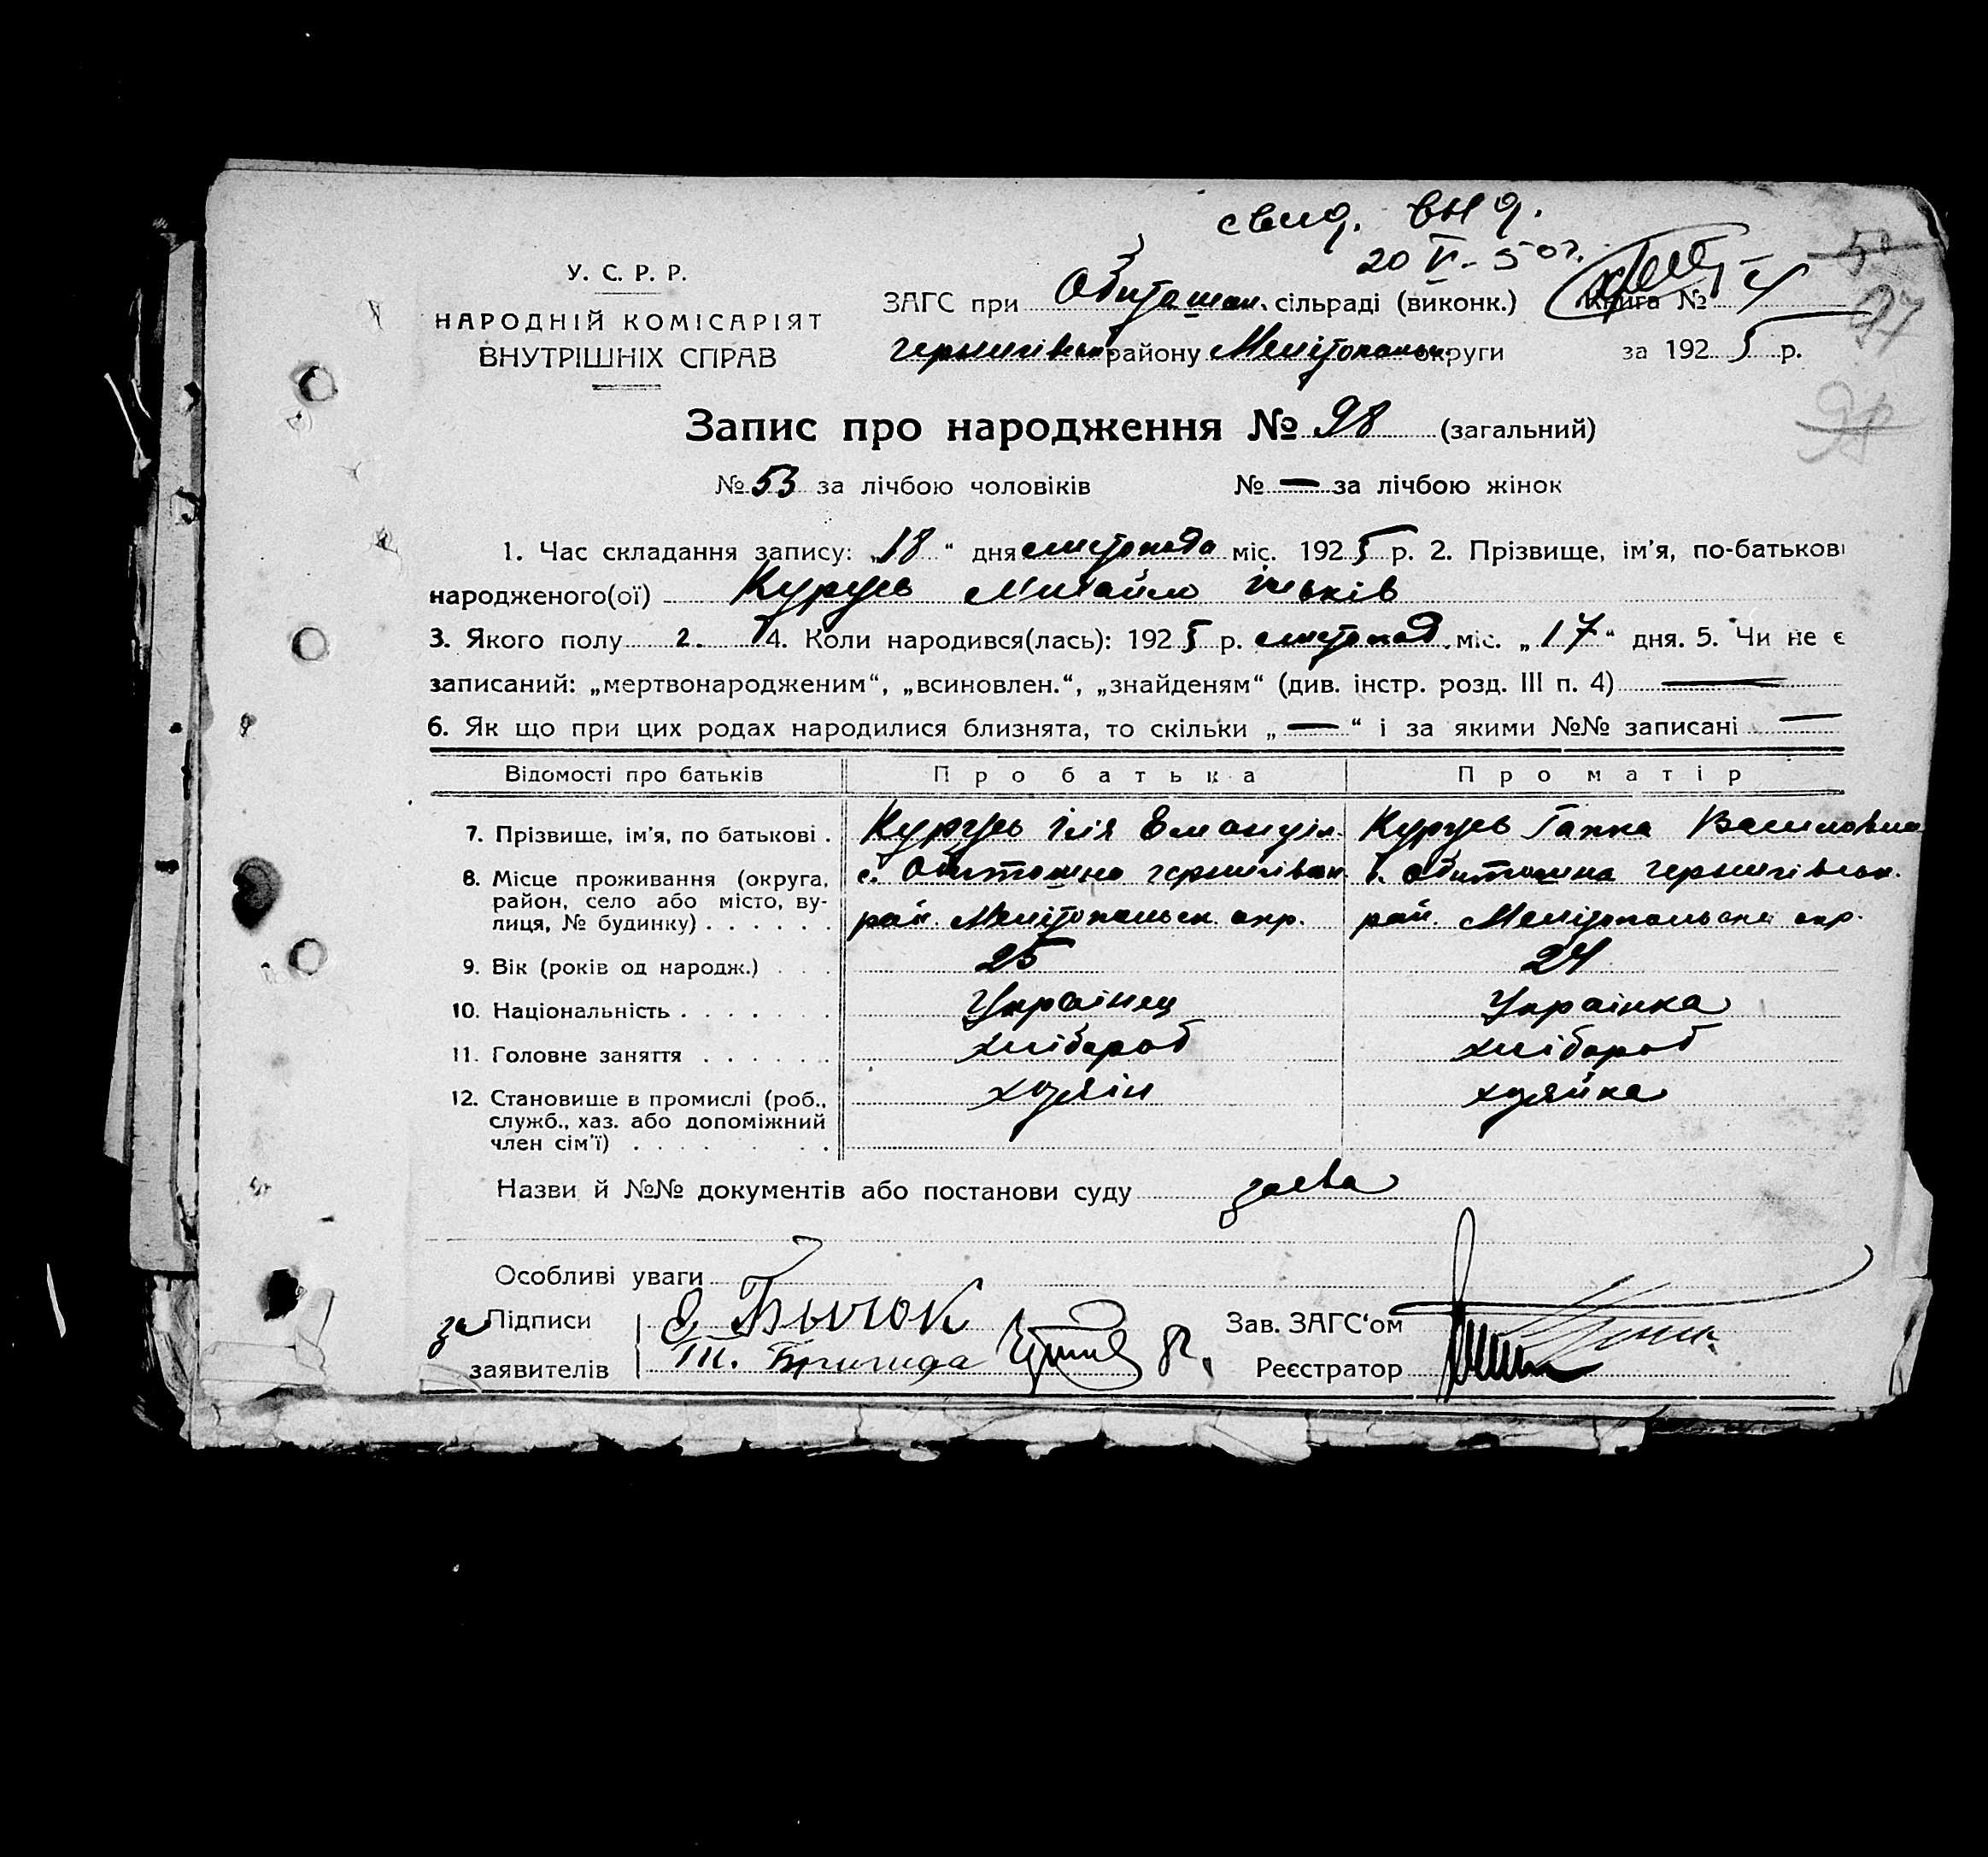 свид. выд.
20 V - 50 г.
У. С. Р. Р.
НАРОДНІЙ КОМІСАРІЯТ
ВНУТРІШНІХ СПРАВ
ЗАГС при Обиточан. сільраді (виконк.) Книга № 4
района Мелітопольськ. округи за 1925 р.
97
98
Запис про народження № 98 (загальний)
№ 53 за лічбою чоловіків № — за лічбою жінок
1. Час складання запису: „18“ дня листопада міс. 1925 р. 2. Прізвище, ім’я, по-батькові
народженого(ої) Михайло Ільків
3. Якого полу 2. 4. Коли народився(лась): 1925 р. листопад. міс. „17“ дня. 5. Чи не є
записаний: „мертвонародженим“, „всиновлен.“, „знайденям“ (див. інстр. розд. III п. 4) —
6. Як що при цих родах народилися близнята, то скільки „—“ і за якими №№ записані —
Відомості про батьків Про батька Про матір
7. Прізвище, ім’я, по батькові . Ілія Емануіл. Гапка Василовна
8. Місце проживання (округа, район, село або місто, вулиця, № будинку) . . . . . .
с. Обиточна чернигівськ. с. Обиточна чернигівськ.
рай. Мелітопольськ. окр. рай. Мелітопольськ окр.
9. Вік (років од народж.) . . . 25 24
10. Національність . . . . . . . Українец Українка
11. Головне заняття . . . . . . хлібороб хлібороб
12. Становище в промислі (роб., служб., хаз. або допоміжний член сім’ї) . . . . . . хозяін хозяйка
Назви й №№ документів або постанови суду заєва
Особливі уваги
за Підписи Е. Бычок Зав. ЗАГС‘ом
заявителів Т. Реєстратор